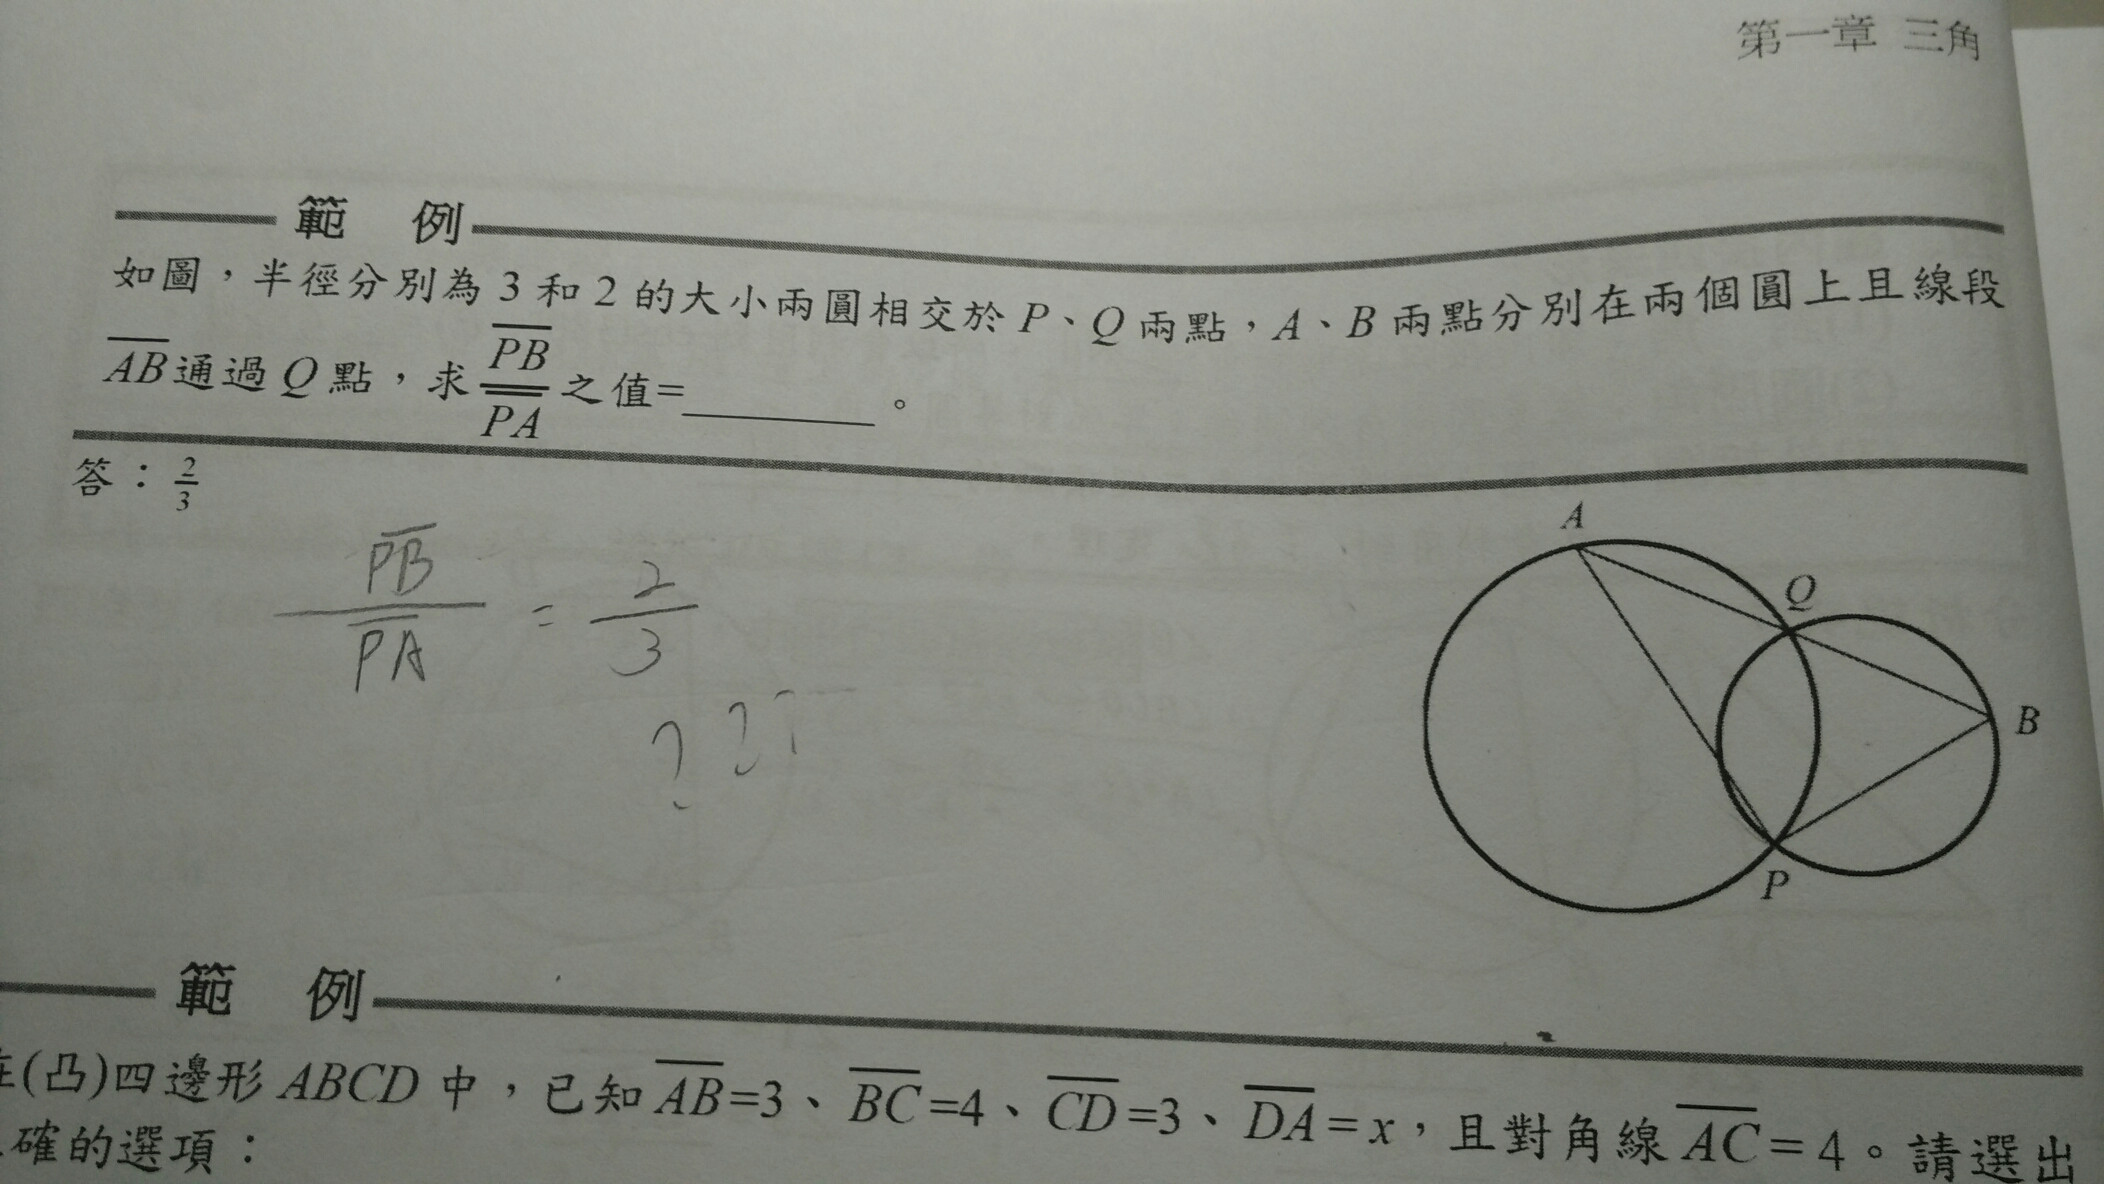 第一章 三角
範 例
如圖，半徑分別為 3 和 2 的大小兩圓相交於 P、Q 兩點，A、B 兩點分別在兩個圓上且線段
AB通過 Q 點，求 PB/PA 之值=______。
答：2/3
PB/PA = 2/3
???
A
Q
B
P
範 例
(凸)四邊形 ABCD 中，已知 AB=3、BC=4、CD=3、DA=x，且對角線 AC=4。請選出
確的選項：